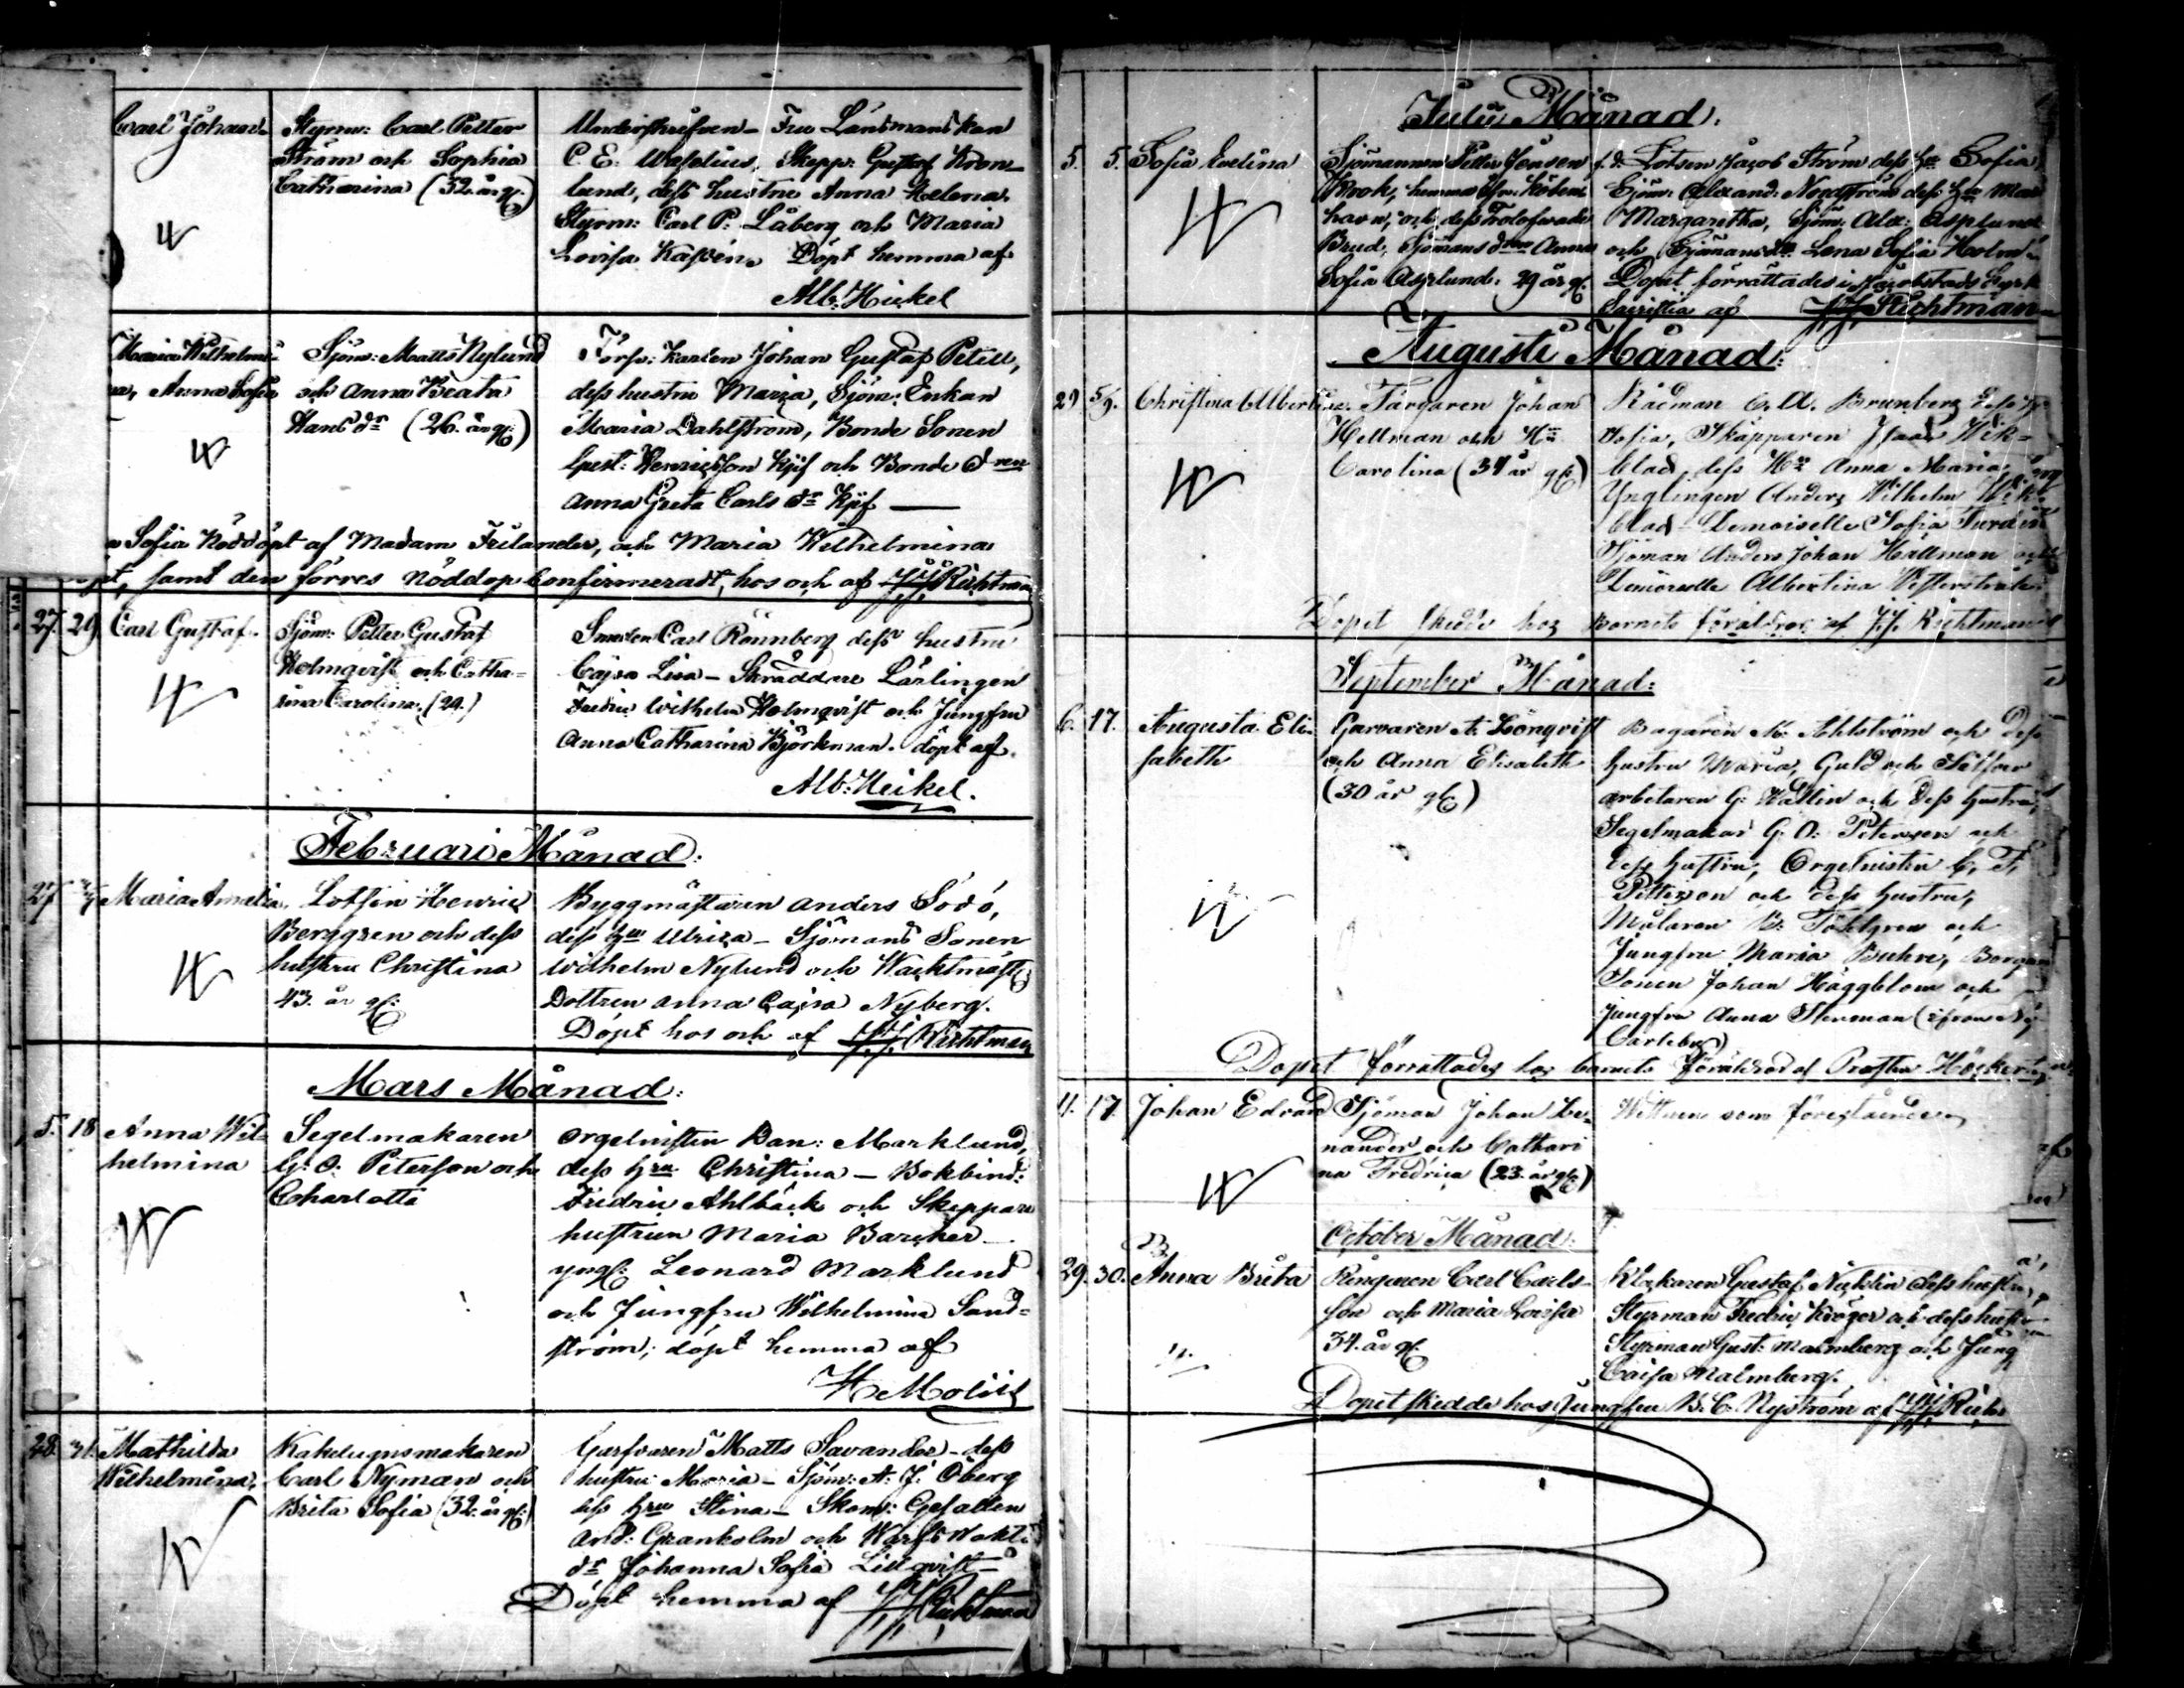 Carl Johan
Styrm: Carl Petter
Ström och Sophia
Catharina (32. år gl.)
Underskrifven - Fru Länsmanskan
C. E. Skepp: Gustaf Kron-
lund, dess hustru Anna Helena
Styrm: Carl P. Låberg och Maria
Lovisa Döpt hemma af
Alb: Heikel
Maria Wilhelmi
na, Anna Sofia
Sjöm: Matts Nylund
och Anna Beata
Hansdr (26. år gl:)
Torp: Karlen Johan Gustaf Petell,
dess hustru Maria, Sjöm: Enkan
Maria Dahlström, Bonde Sonen
Gust: Henriksson Kjif och Bonde dren
Anna Greta Carls dr Kjif
a Sofia Nöddöpt af Madam Frilander, och Maria Wilhelmina
samt den förres nöddop Confirmeradt, hos och af J. J. Richtman
27. 29 Carl Gustaf.
Sjöm: Petter Gustaf
Holmqvist och Catha-
rina Carolina. (24.)
Smeden Carl Rönnberg dess hustru
Cajsa Lisa - Skräddare Lärlingen
Fredric Wilhelm Holmqvist och Jungfru
Anna Catharina Björkman. döpt af.
Alb: Heikel.
Februari Månad:
27 Maria Amalia.
Lotsen Henric
Berggren och dess
hustru Christina
43. år gl:
Byggmästaren Anders Södö,
dess hru Ulrica - Sjömans Sonen
Wilhelm Nylund och Wacktmäst
Dottren Anna Cajsa Nyberg.
Döpt hos och af J. J. Richtman
Mars Månad:
5. 18 Anna Wil-
helmina
Segelmakaren
G: O: Peterson och
Charlotta
Orgelnisten Dan: Marklund,
dess hru Christina - Bokbind:
Fredric Ahlbäck och Skeppare
hustrun Maria Barcker -
yngl: Leonard Marklund
och Jungfru Wilhelmina Sand-
ström; döpt hemma af
H Molin
28. 31. Mathilda
Wilhelmina.
Kakelugnsmakaren
Carl Nyman och
Brita Sofia (32. år gl:)
Garfvaren Matts Savander - dess
hustru Maria - Sjöm: A: J: Öberg
dess hru Stina - Skom: Gesällen
And: Granholm och Warfs Wakt
dr Johanna Sofia Lillqvist -
Döpt hemma af J. J. Richtman
Julii Månad.
5. 5. Sofia Evelina
Sjömannen Petter Jensen
Krook, hemma ifrn: Köben-
havn, och dess Trolofvade
Brud, Sjömans dren Anna
Sofia Asplund. 29 år gl.
f. d. Lotsen Jacob Ström dess hru Sofia
Sjöm: Alexand: Nordström dess hru
Margaretha, Sjöm: Alex: Asplund
och Sjömans dr Lena Sofia Holm
Dopet förrättades i Jacobstads Kyrk
Sacristia af J. J. Richtman
Augusti Månad:
29 5/9. Christina Albertina.
Färgaren Johan
Hellman och Hu
Carolina (37 år gl)
Rådman C. A. Brunberg dess
Sofia, Skepparen Isaac Wik-
blad, dess Hu Anna Maria,
Ynglingen Anders Wilhelm Wik
blad - Demoiselle Sofia Turdin
Sjöman Anders Johan Hällman och
Demoiselle Albertina Westerstråle.
Dopet skedde hos Barnets föräldrar af J. J. Richtman
September Månad:
6. 17. Augusta Eli-
sabeth
Garvaren A. Lönqvist
och Anna Elisabeth
(30 år gl:)
Bagaren M. Ahlström och Dess
hustru Maria, Guld och Silfver
arbetaren G: Wallin och dess hustru,
Segelmakar G: O: Peterson och
dess hustru, Orgelnisten C. F.
Petterson och dess hustru,
Målaren B: Tohlgren och
Jungfru Maria Buhre, Borgare
Sonen Johan Häggblom och
Jungfru Anna Stenman (ifrån Ny
Carleby)
Dopet förrättades hos barnets föräldrar af Prosten Höckert
11. 17. Johan Edvard
Sjöman Johan Le-
nander och Cathari
na Fredrica (23. år gl:)
Wittnen som förestående
October Månad:
29. 30. Anna Brita
Ringaren Carl Carls-
son och Maria Lovisa
34. år gl.
Klåkaren Gustaf Nicklin dess hustru,
Styrman Fredric Kröger och dess hustr
Styrman Gust: Malmberg och Jung
Caisa Malmberg.
Dopet skedde hos Jungfru B. C. Nyström af J. J. Richt